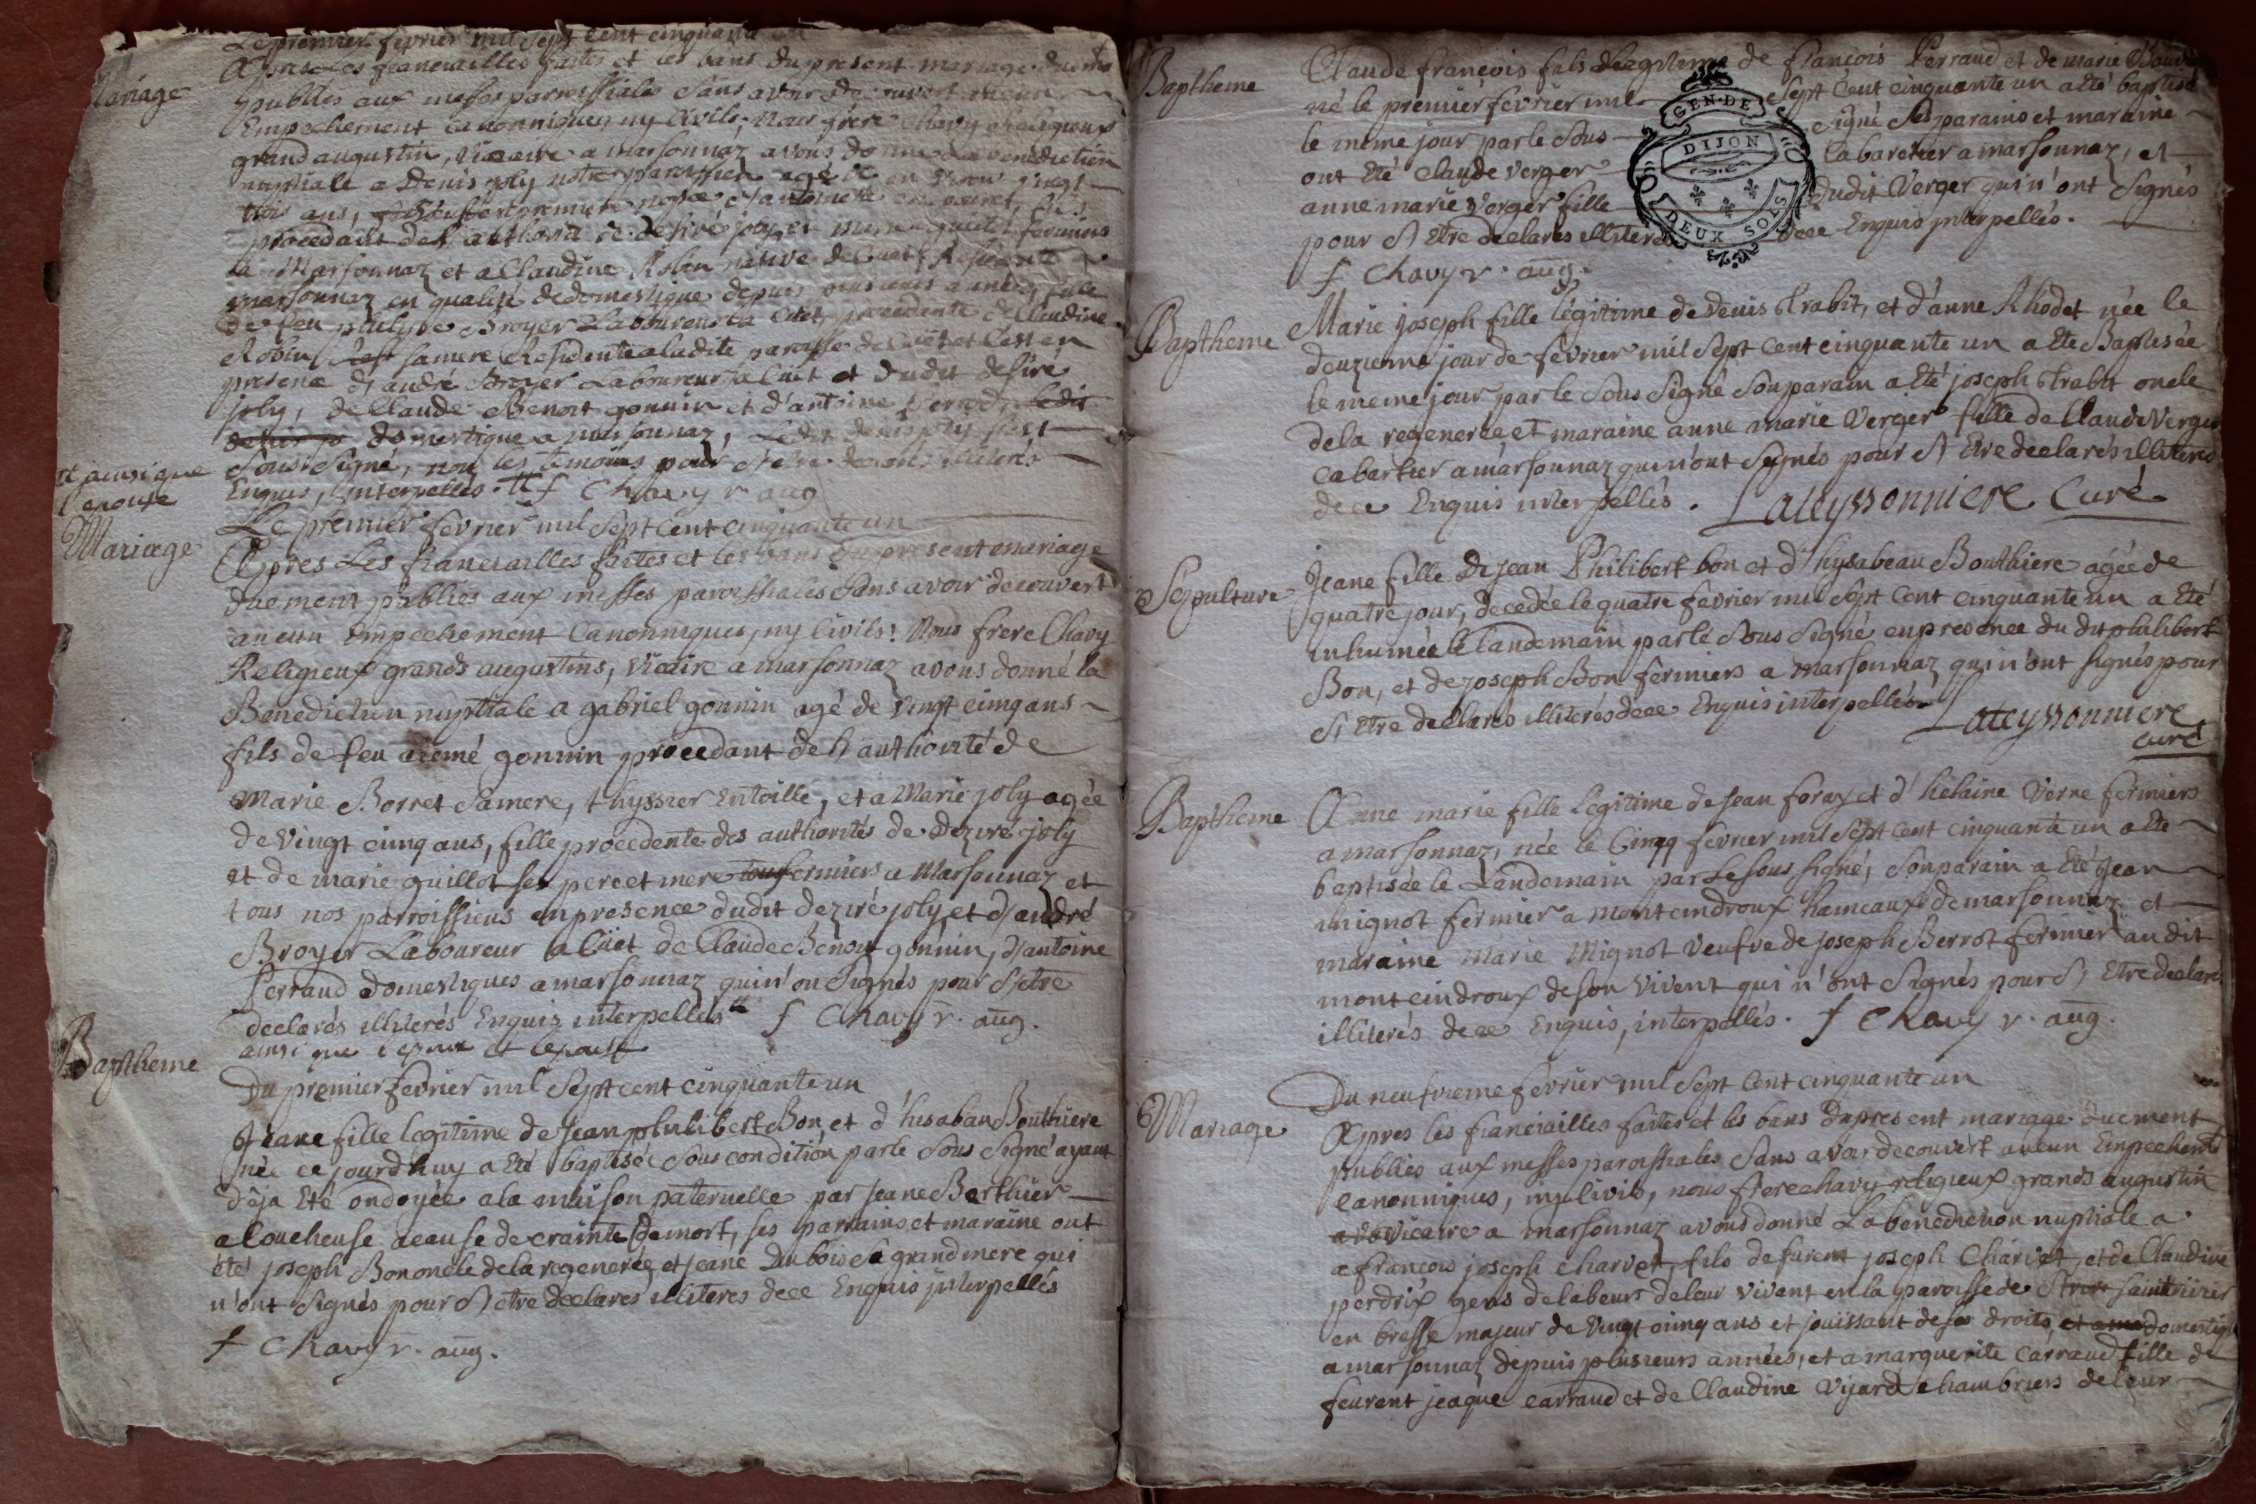 Le premier fevrier mil sept cent cinquante un
Mariage
Apres Les fiancailles faites et les bans du present mariage duement
publies aux messes paroissiales sans avoir decouvert aucun
Empechement canonniques ny Civils, nous frere Chavy religieux
grand augustin, vicaire a marsonnaz avons donné la benediction
nuptiale a Denis joly notre paroissien agé de vingt
trois ans,
procedant de l'authorité de desiré joly et marie guillot fermiers
a Marsonnaz et a Claudine native de Cuet Residente
marsonnaz en qualité de domestique depuis plusieurs années, fille
de feu philipe Broyer Laboureur a Cuet, procedente de Claudine
Robin sa mere Residente a ladite paroisse de Cuet et c'est en
presence d'andré Broyer Laboureur a Cüet et dudit desiré
joly, de Claude Benoit gonnin et d'antoine ferraud
domestique a marsonnaz,
sous signé, non les temoins pour s'etre declarés illiterés
Enquis, interpellés. f Chavy r. aug
et ainsi que
l'epouse
Le premier fevrier mil sept cent cinquante un
Mariage
Apres Les fiancailles faites et les bans du present mariage
duement publies aux messes paroissiales sans avoir decouvert
aucun Empechement Canonniques, ny Civils! Nous frere Chavy
Religieux grands augustins, vicaire a marsonnaz avons donné la
Benediction nuptiale a gabriel gonnin agé de vingt cinq ans
fils de feu aiemé gonnin procedant de l'authorité de
Marie Borret sa mere, thyssier Entoille, et a Marie joly agée
de vingt cinq ans, fille procedente des authorités de Deziré joly
et de marie guillot ses pere et mere fermiers a Marsonnaz et
tous nos parroissiens en presence dudit deziré joly, et d'andré
Broyer Laboureur a Cüet de Claude Benoit gonnin, d'antoine
ferraud domestiques a marsonnaz qui n'on signés pour s'etre
declarés illiterés Enquis interpellés f Chavy r. aug.
ainsi que l'epoux et l'epouse
Baptheme
Du premier fevrier mil sept cent cinquante un
Jeane fille legitime de Jean philibert Bon et d'hisabau Bouthiere
née ce jourd'huy a Eté baptisée sous condition par le sous signé ayant
déja Eté ondoyée a la maison paternelle par Jeane Berthier
a Coucheuse a cause de crainte de mort, ses parrains et maraine ont
été joseph Bon oncle de la regenerée et Jeane Dubois sa grand mere qui
n'ont signés pour s'etre declares illiteres de ce Enquis interpellés
f Chavy r. aug.
Baptheme
Claude francois fils legitime de francois Perraud et de marie
né le premier fevrier mil sept Cent cinquante un a eté baptisé
le meme jour par le sous signé ses parains et maraine
ont eté Claude verger Cabaretier a marsonnaz, et
anne marie verger fille dudit Verger qui n'ont signés
pour s'Etre declarés illiterés de ce Enquis interpellés.
f Chavy r. aug.
GEN. DE
DIJON
DEUX SOLS
Baptheme
Marie joseph fille légitime de Denis Trabit, et d'anne Rhodet née le
deuzieme jour de fevrier mil sept cent cinquante un a Eté Baptisée
le meme jour par le sous signé son parain a Eté joseph Trabit oncle
de la regenerée et maraine anne marie verger fille de Claude Verger
Cabartier a marsonnaz qui n'ont signés pour s'Etre declarés illiterés
de ce Enquis interpellés. Lateyssonniere Curé
Sepulture
Jeane fille de Jean Philibert bon et d'hysabeau Bouthiere agée de
quatre jour, decedée le quatre fevrier mil sept Cent cinquante un a Eté
inhumée le landemain par le sous signé en presence du dit philibert
Bon, et de joseph Bon fermiers a Marsonnaz qui n'ont signés pour
s'Etre declarés illiterés de ce Enquis interpellés Lateyssonniere
curé
Baptheme
Anne marie fille Légitime de Jean foray et d'hélaine Verne fermiers
a marsonnaz, née le Cinqq fevrier mil sept cent cinquante un a Eté
baptisée le Landemain par le sous signé, son parain a Eté Jean
mignot fermier a Monteindroux hameaux de marsonnaz et
maraine Marie Mignot veufve de joseph Berrot fermier au dit
monteindroux de son Vivent qui n'ont signés pour s'Etre declarés
illiterés de ce Enquis, interpellés. f Chavy r. aug.
Mariage
Du neufvieme fevrier mil sept Cent cinquante un
Apres les fiancailles faites et les bans du present mariage duement
publiés aux messes paroissiales sans avoir decouvert aucun Empechement
canonniques, ny civils, nous frere chavy religieux grands augustin
vicaire a marsonnaz avons donné La benediction nuptiale a
a francois joseph charvet, fils de furent joseph Charvet, et de Claudine
perdrix gens de labeur de leur vivent en la paroisse de saint trivier
en bresse majeur de vingt cinq ans et jouissant de ses droits domestique
a marsonnaz depuis plusieurs années, et a marguerite Carraud fille de
feurent jeaque carraud et de Claudine Vyard chambriers de leur